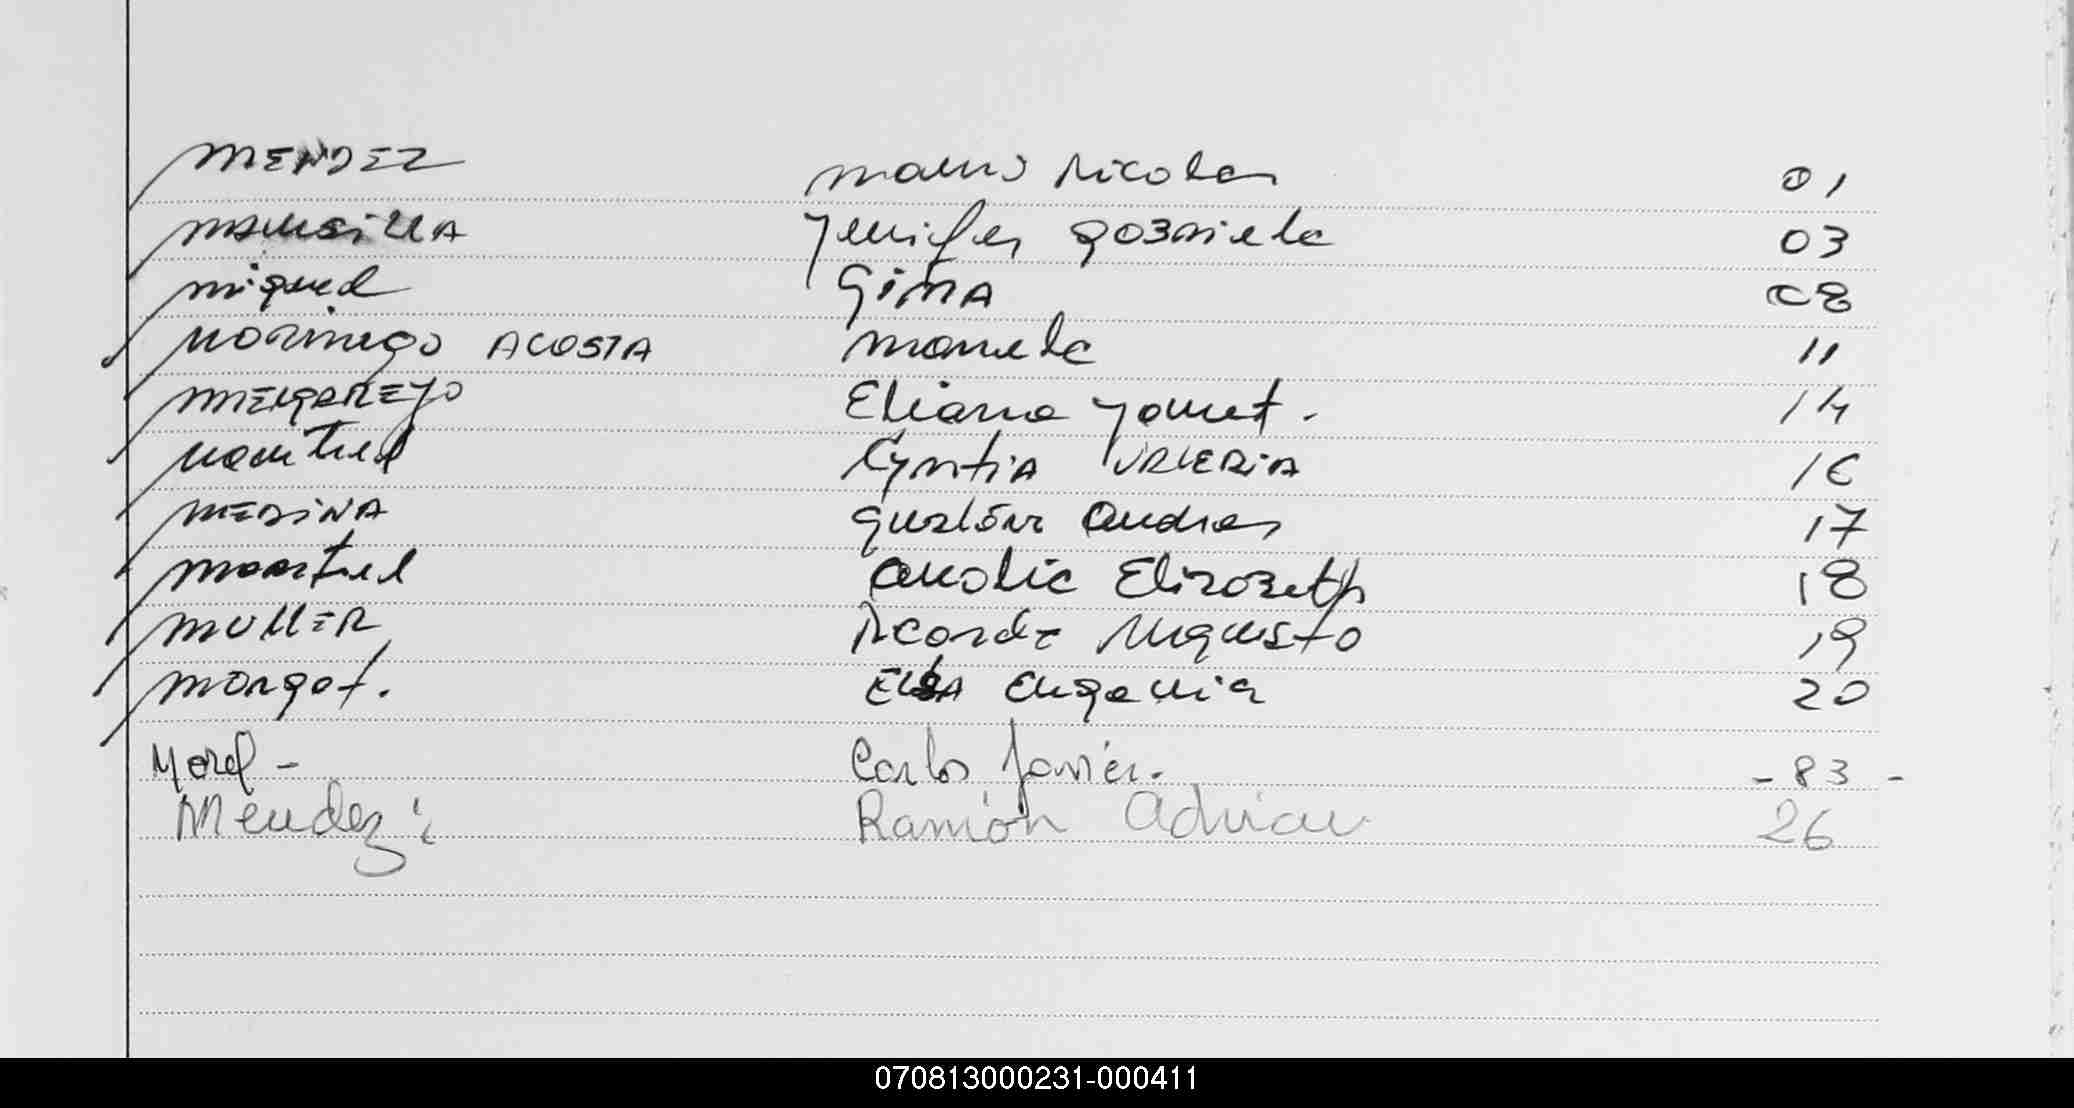 MENDEZ mauro Nicolas 01
MANSILLA Jenifer gabriela 03
miguel GiNA 08
Noriniego ACOSTA mariela 11
MELGAREJO Eliana Yanet. 14
Cyntia VALERIA 16
MEDINA gustavo andres 17
analia Elizabeth 18
MULLER Ricardo Augusto 19
morgot. ELSA Eugenia 20
Morel - Carlos Javier. - 83 -
Mendez Ramón Adrian 26
070813000231-000411